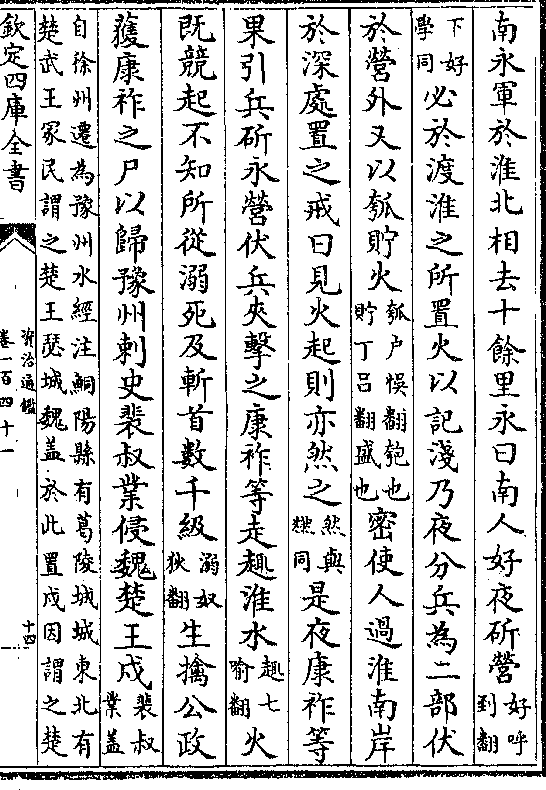 南永軍於淮北相去十餘里永曰南人好夜斫營好呼到翻
下好學同必於渡淮之所置火以記淺乃夜分兵為二部伏
於營外又以瓠貯火瓠户悞翻匏也貯丁吕翻盛也密使人過淮南岸
於深處置之戒曰見火起則亦然之然與燃同是夜康祚等
果引兵斫永營伏兵夾擊之康祚等走趣淮水趣七喻翻火
既競起不知所從溺死及斬首數千級溺奴狄翻生擒公政
獲康祚之尸以歸豫州刺史裴叔業侵魏楚王戍裴叔業蓋
自徐州遷為豫州水經注鮦陽縣有葛陵城城東北有
楚武王冢民謂之楚王瑟城魏蓋於此置戍因謂之楚
欽定四庫全書
資治通鑑
卷一百四十一
十四